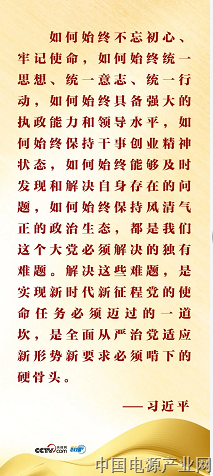 如何始终不忘初心、
牢记使命，如何始终统一
思想、统一意志、统一行
动，如何始终具备强大的
执政能力和领导水平，如
何始终保持干事创业精神
状态，如何始终能够及时
发现和解决自身存在的问
题，如何始终保持风清气
正的政治生态，都是我们
这个大党必须解决的独有
难题。解决这些难题，是
实现新时代新征程党的使
命任务必须迈过的一道
坎，是全面从严治党适应
新形势新要求必须啃下的
硬骨头。
——习近平
CCTV.com
中国电源产业网